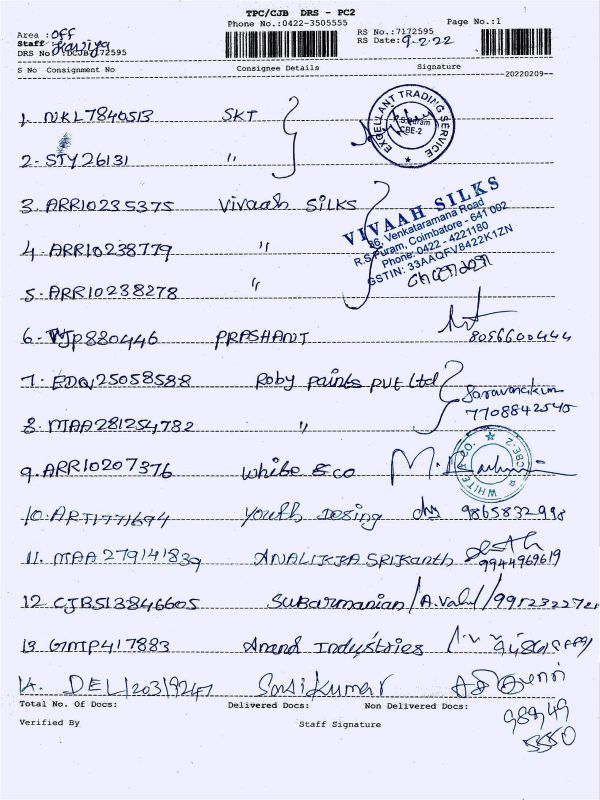 TPC/CJB DRS - PC2
Phone No.:0422-3505555
Page No.:1
Area : OFF
Staff
RS No.:7172595
RS Date: 9-2-22
DRS No
S No Consignment No Consignee Details Signature
20220209--
1. NKL7840513 SKT
EXCELLANT TRADING SERVICE
CBE-2
2- STY26131 "
3. ARR10235375 Vivaah SILKS
VIVAAH SILKS
36, Venkataramana Road
R.S.Puram, Coimbatore - 641 002
Phone: 0422 - 4221180
GSTIN: 33AAQFV8422K1ZN
4. ARR10238779 "
5. ARR10238278 "
6- 880446 PRASHANT 8056600444
7. EDQ25058588 Roby paints pvt Ltd
8. MAA281254782 " 7708842545
9. ARR10207376 white & co
WHITE & CO. CBE-2
10. ART1771694 Youth Desing 9865832998
11. MAA279141839 SRIKanth 9944969619
12 CJB513846605 Subarmanian
13 GMP417883 Anand Industries
14. Sasikumar
Total No. Of Docs: Delivered Docs: Non Delivered Docs:
Verified By Staff Signature